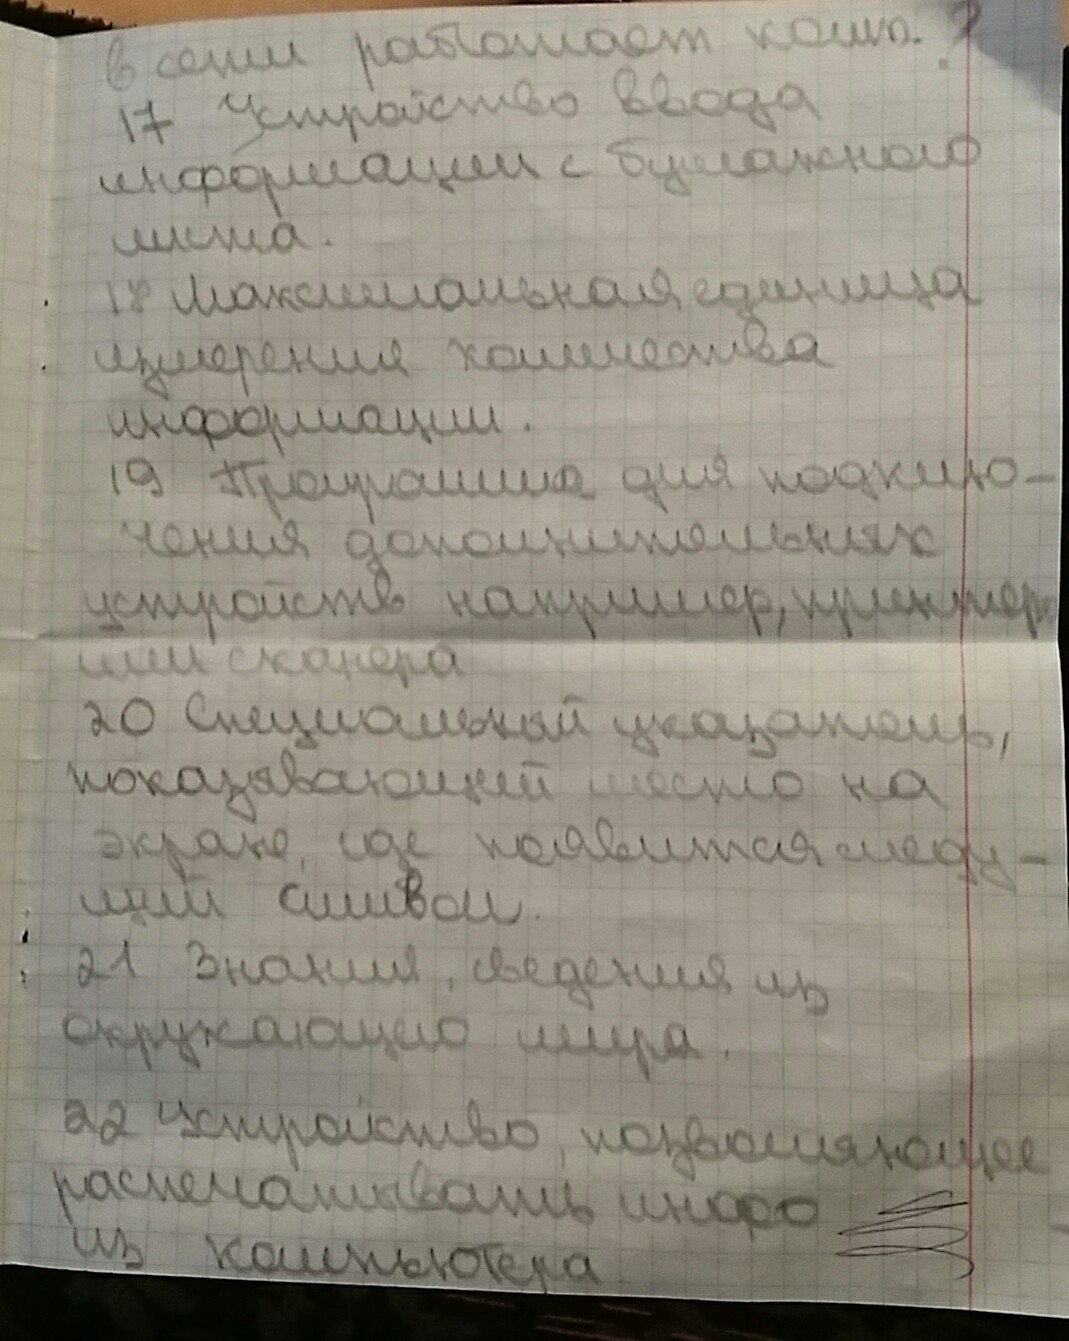 в сети работает комп.?
17 Устройство ввода
информации с бумажного
листа.
18 Максимальная единица
измерения количества
информации.
19 Программа для подклю-
чения дополнительных
устройств например, принтер
или сканера
20 Специальный указатель,
показывающий место на
экране, где появится следу-
щий символ.
21 Знания, сведения из
окружающего мира.
22 Устройство, позволяющее
распечатывать инфо
из компьютера